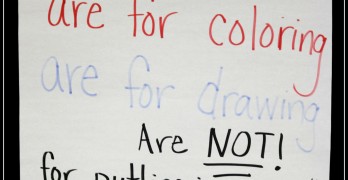 are for coloring
are for drawing
Are NOT!
for